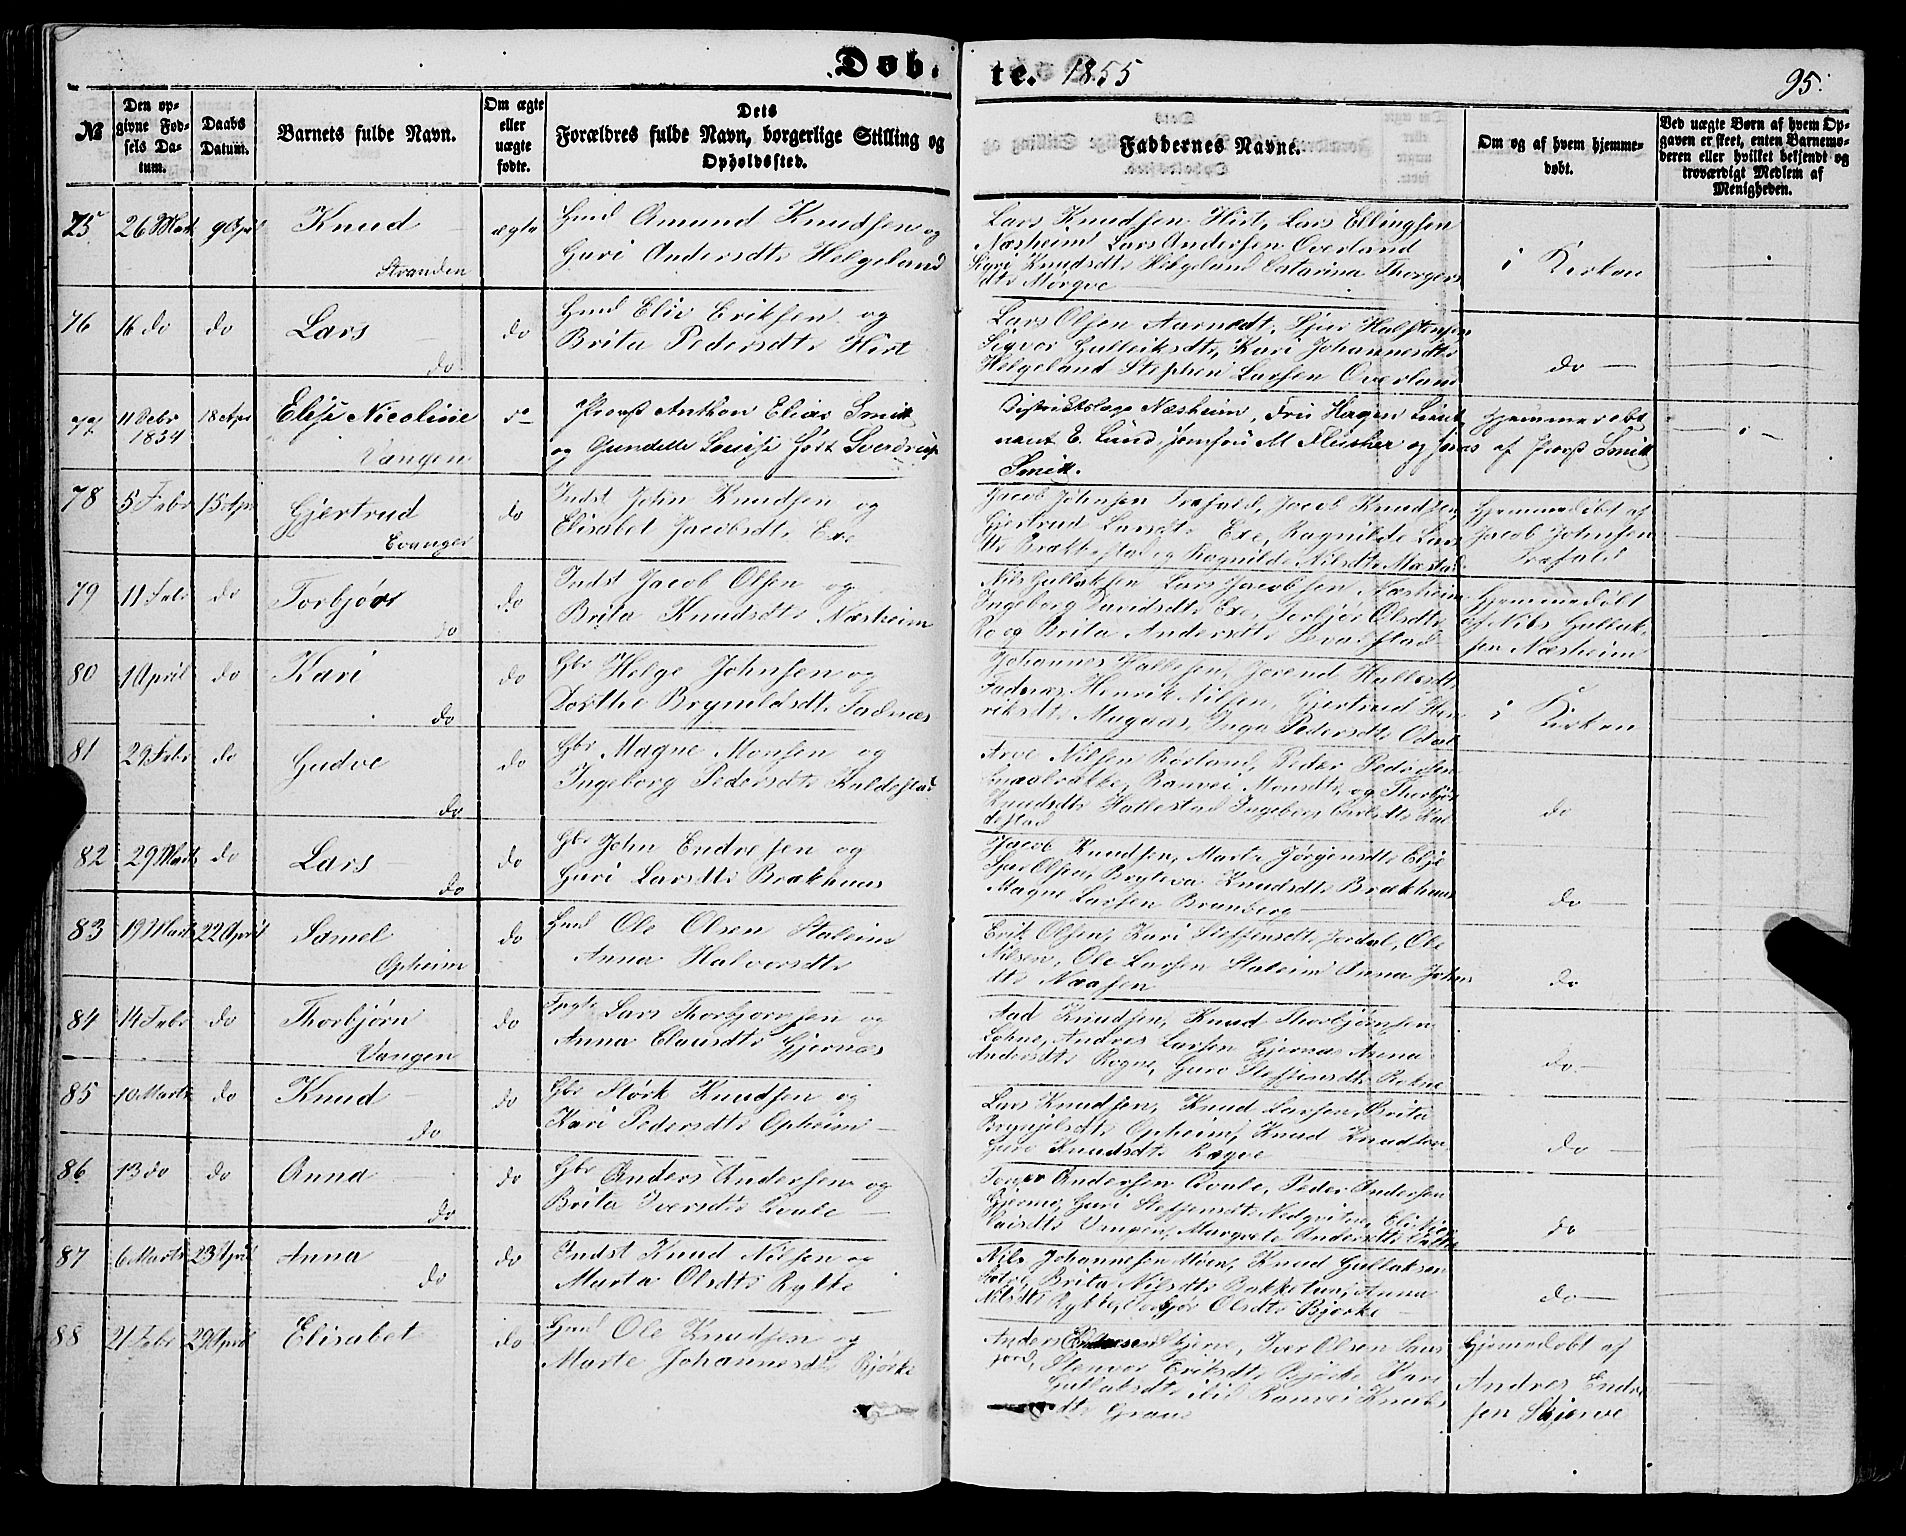 Døb.
te. 1855
95.
№
Den op-
givne Fød-
sels Da-
tum.
Daabs
Datum.
Barnets fulde Navn.
Om ægte
eller
uægte
fødte.
Dets
Forældres fulde Navn, borgerlige Stilling og
Opholdssted.
Faddernes Navne.
Om og af hvem hjemme-
døbt.
Ved uægte Børn af hvem Op-
gaven er skeet, enten Barnemo-
deren eller hvilket bekjendt og
troværdigt Medlem af
Menigheden.
75 26 Mart 9 April Knud
Stranden
ægte
Gmd Amund Knudsen og
Guri Andersdtr Helgeland
Lars Knudsen Hirt, Lars Ellingsen
Næsheim Lars Andersen Overland
Sigri Knudsdtr Helgeland Catarina Thorgers
dtr Mørgve
i Kirken
76 16 do do Lars
do
do
Gmd Elir Eriksen og
Brita Pedersdtr Hirt
Lars Olsen Aarnedt, Sjur Halstensen
Sigvor Gulleiksdtr, Kari Johannesdtr
Helgeland Stephen Larsen Overland
do
77. 11 Debr
1854
18 Apr Elise Nicoline
Vangen
do
Provst Anthon Elias Smitt
og Gundelle Louise Hjort Sverdrup
Distriktslæge Næsheim, Fru Hagen Lieut
nant E. Lund, Jomfru M Fleischer og Provst
Smitt.
Hjemmedøbt
af Provst Smitt
78 5 Febr 15 Apr Gjertrud
Evanger
do
Indst John Knudsen og
Elisabet Jacobsdtr Exe
Jacob Johnsen Træfald, Jacob Knudsen
Gjertrud Larsdtr Exe, Ragnilde Lars
dtr Brækhestad og Ragnilde Nilsdtr Mæstad
Hjemmedøbt af
Jacob Johnsen
Træfald
79 11 Febr do Torbjør
do
do
Indst Jacob Olsen og
Brita Knudsdtr Næsheim
Nils Gullaksen Lars Jacobsen Næsheim
Ingeborg Davidsdtr Exe, Torbjør Olsdtr
Ro og Brita Andersdtr
Hjemmedøbt
af Nils Gullak-
sen Næsheim
80 1 April do Kari
do
do
Gbr Helge Johnsen og
Dorthe Brynildsdtr Fadnæs
Johannes Hallesen, Jorend Hallesdtr
Fadnæs, Henrik Nilsen, Gjertrud Hen
riksdtr Mugaas, Inga Pedersdtr
i Kirken
81 29 Febr do Gudve
do
do
Gbr Magne Monsen og
Ingeborg Pedersdtr Kaldestad
Arve Nilsen Rørland, Peder Pedersen
Snasbrække, Ranvei Monsdtr, og Thorbjør
Knudsdtr Hallestad Ingeborg Carlsdtr Kal
destad
do
82 29 Mart do Lars
do
do
Gbr John Endresen og
Guri Larsdtr Brækhus
Jacob Knudsen, Marta Jørgensdtr Elje
Sjur Olsen, Bryteva Knudsdtr Brækhus
Magne Larsen Brunborg
do
83 19 Mart 22 April Samel
Opheim
do
Gmd Ole Olsen Staleim
Anna Halversdtr
Erik Olsen, Kari Steffensdtr Jordal, Ole
Nilsen, Ole Larsen Staleim Anna Johns
dtr Naasen
do
84 14 Febr do Thorbjørn
Vangen
do
Lars Thorbjornsen og
Anna Clausdtr Gjernæs
Aad Knudsen, Knud Thorbjørnsen
Lohne, Andres Larsen Gjernæs Anna
Andersdtr Rogne, Guro Steffensdtr Rokne
do
85 10 Marts do Knud
do
do
Gbr Størk Knudsen og
Kari Pedersdtr Opheim
Lars Knudsen, Knud Larsen, Brita
Brynjelsdtr Opheim, Knud Knudsen
Guri Knudsdtr Røgve
do
86 13 do do Anna
do
do
Gbr Anders Andersen og
Brita Iversdtr Qvale
Andersen Qvale, Peder Andersen
Gjerme, Guri Steffensdtr Nedqvitne,
Vangen, Margrete Andersdtr
do
87 6 Marts 23 April Anna
do
do
Indst Knud Nilsen og
Marta Olsdtr Rykke
Nils Johannesen Møen, Knud Gullaksen
Brita Nilsdtr Bakketun, Anna
Nilsdtr Rykke, Torbjør Olsdtr Bjørke
do
88 21 Febr 29 April Elisabet
do
Gmd Ole Knudsen og
Marte Johannesdtr Bjørke
Anders Endresen Skjerve, Iver Olsen
Stenvor Eriksdtr Bjørke Kari
Gullaksdtr ibid Ranvei Knuds
dtr Graue
Hjemedøbt af
Andres Endre
sen Skjerve